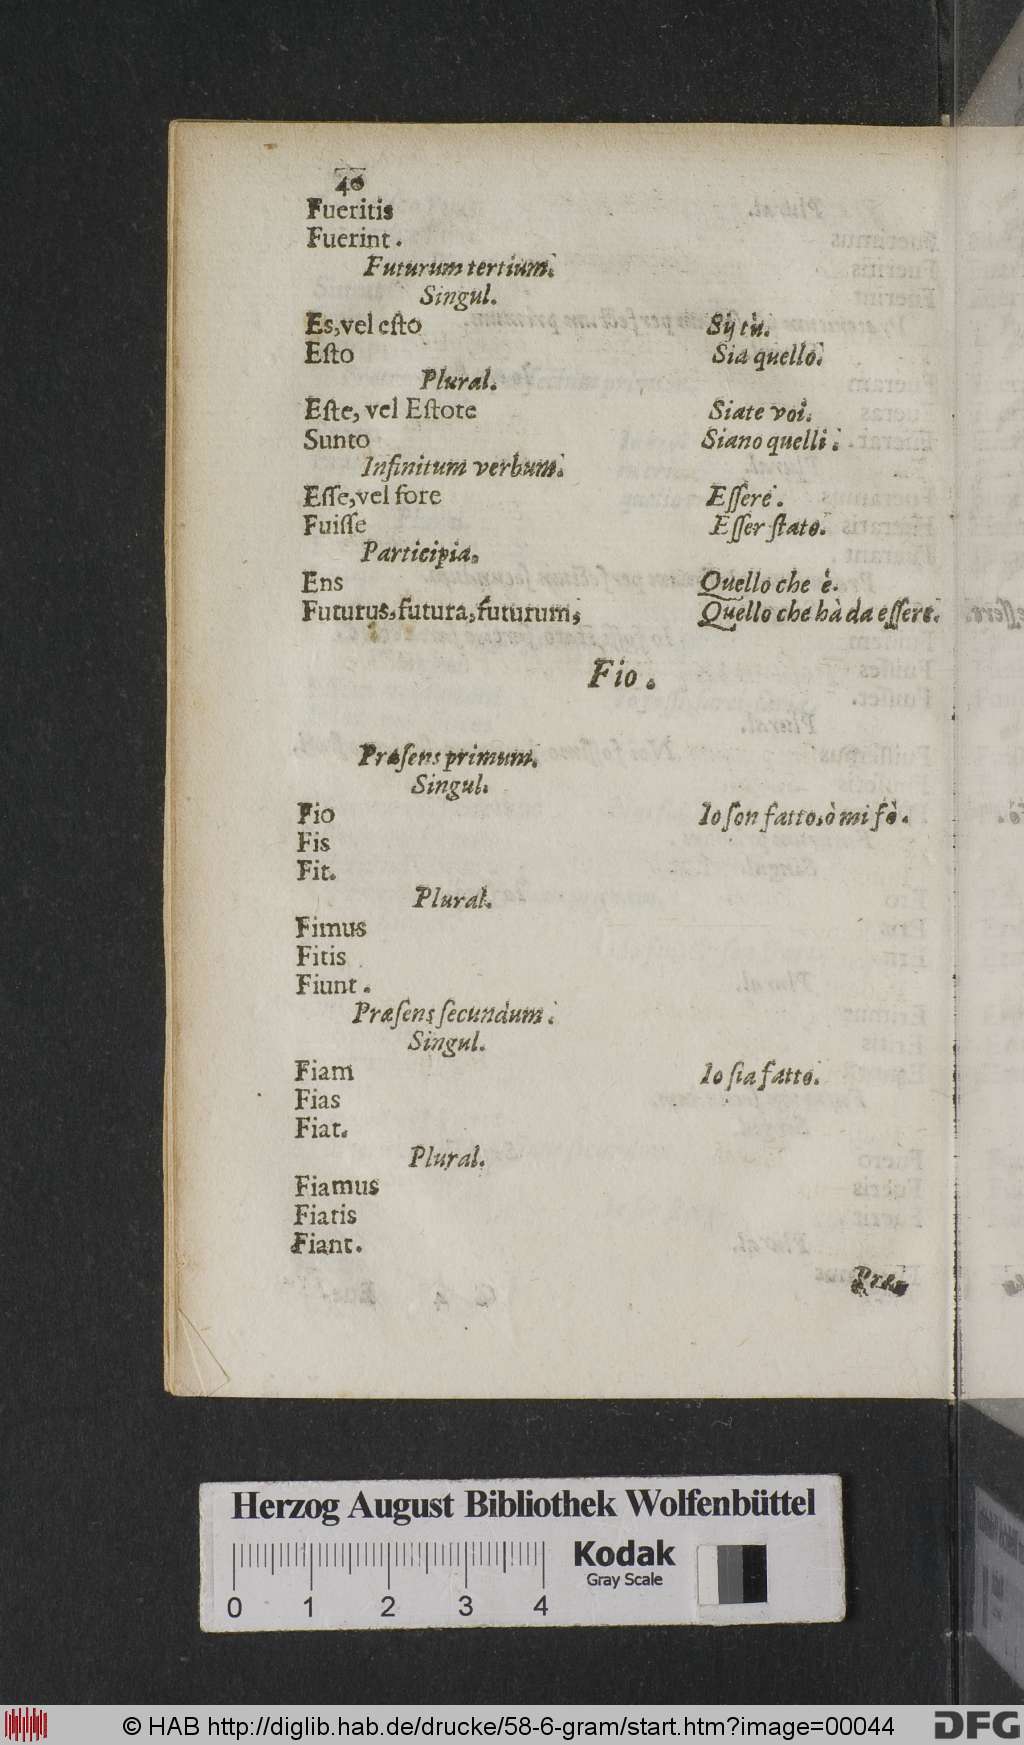 40
Fueritis
Fuerint.
Futurum tertium.
Singul.
Es,vel eſto Sij tù.
Eſto Sia quello.
Plural.
Eſte, vel Eſtote Siate voi.
Sunto Siano quelli.
Infinitum verbum.
Eſſe,vel fore Eſſere.
Fuiſſe Eſſer ſtato.
Participia.
Ens Quello che è.
Futurus,futura,futurum; Quello che hà da eſſere.
Fio.
Præſens primum.
Singul.
Fio Io ſon fatto,ò mi fò.
Fis
Fit.
Plural.
Fimus
Fitis
Fiunt.
Præſens ſecundum.
Singul.
Fiam Io ſia fatto.
Fias
Fiat.
Plural.
Fiamus
Fiatis
Fiant.
Præ-
Herzog August Bibliothek Wolfenbüttel
Kodak
Gray Scale
0 1 2 3 4
© HAB http://diglib.hab.de/drucke/58-6-gram/start.htm?image=00044
DFG